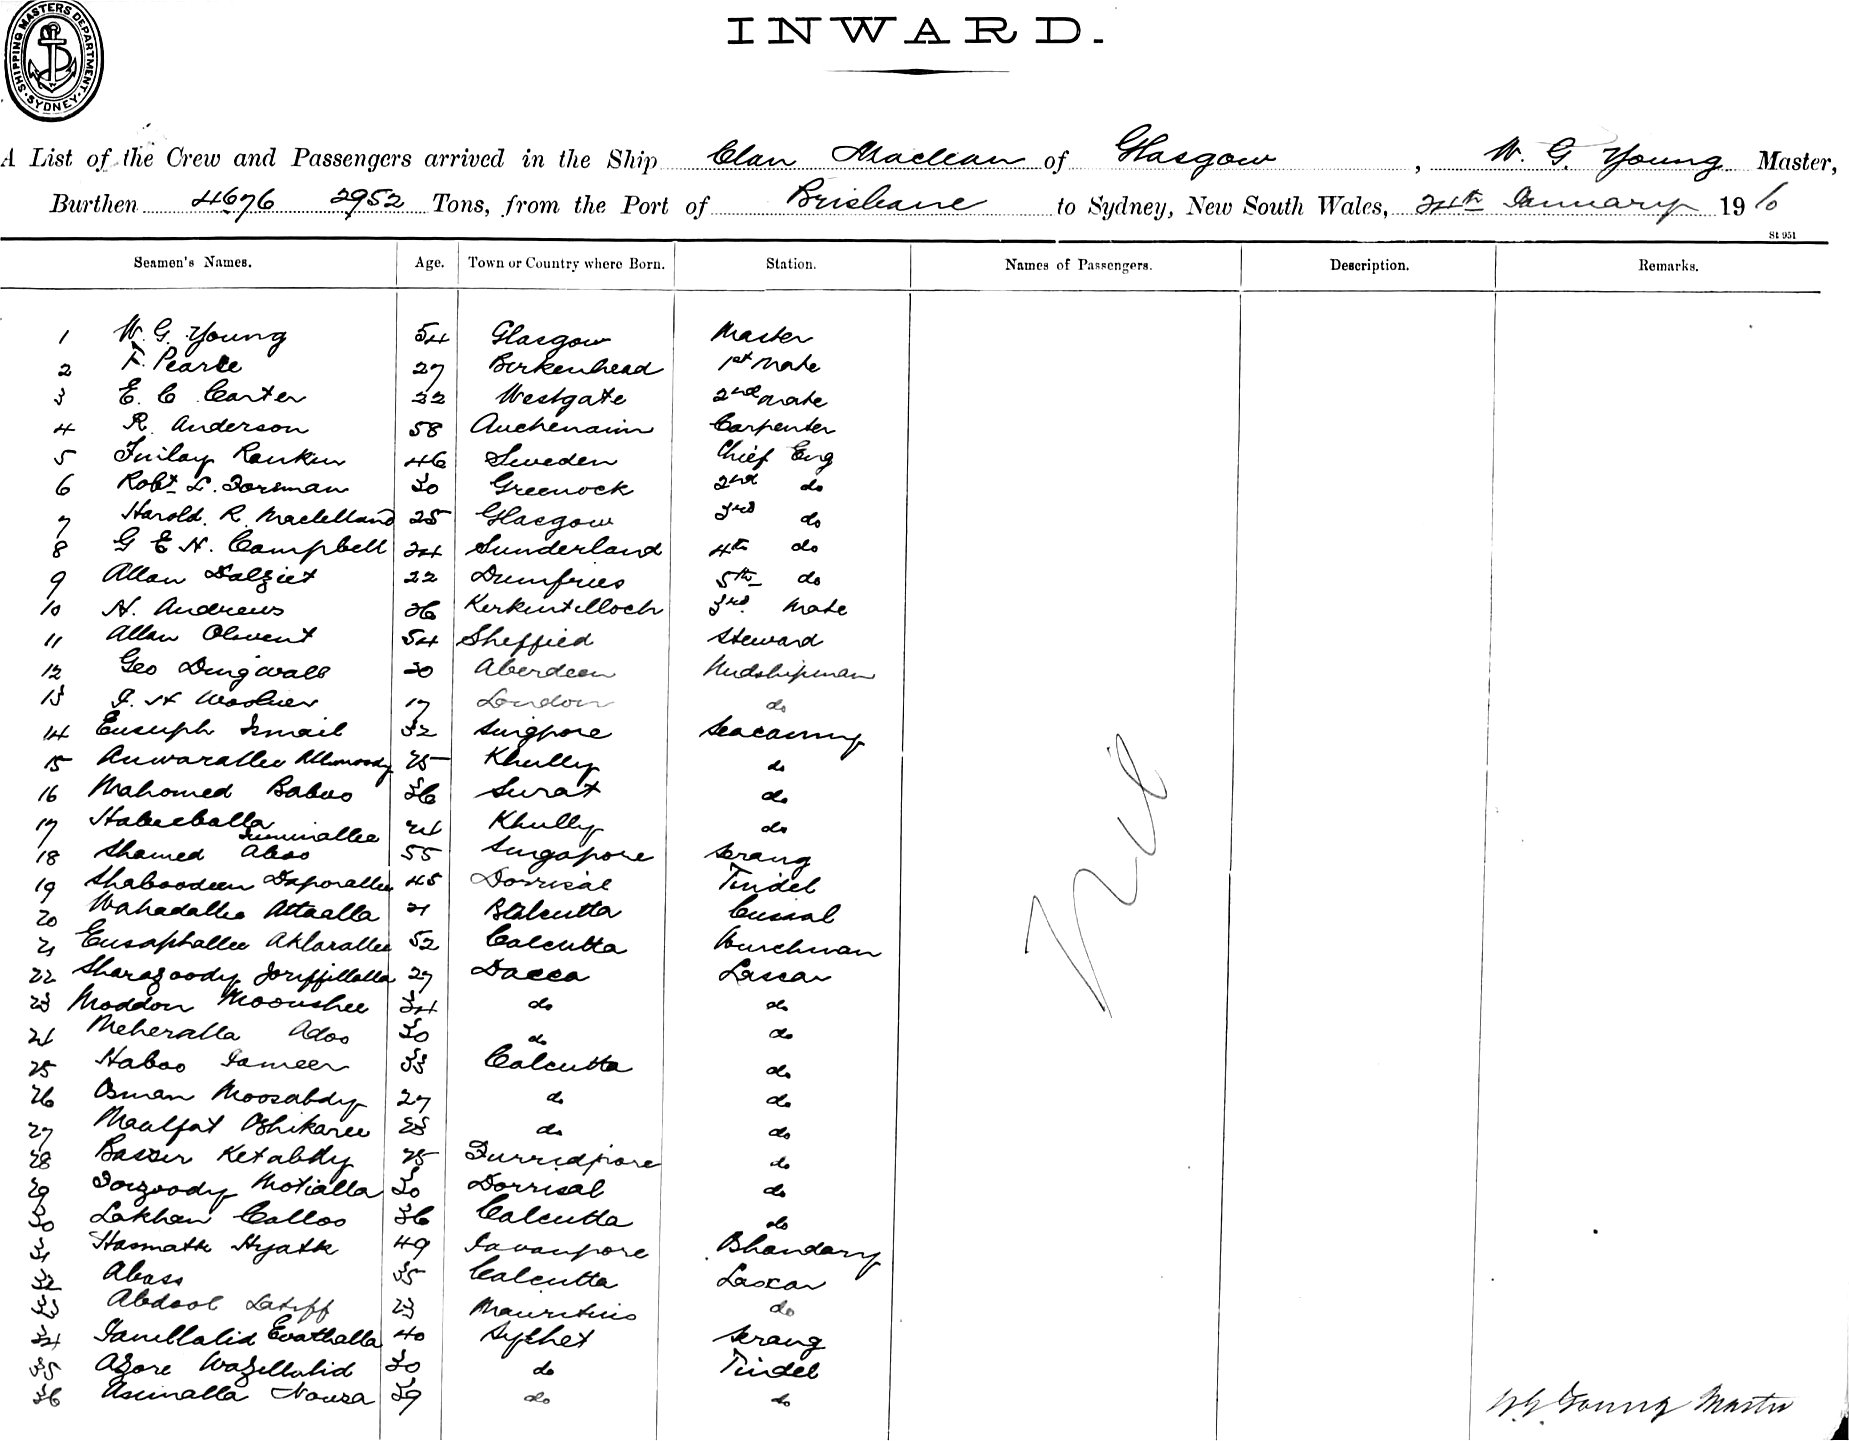 SHIPPING MASTERS DEPARTMENT. SYDNEY.
INWARD.
A List of the Crew and Passengers arrived in the Ship Clan Maclean of Glasgow, W. G. Young Master,
Burthen 4676 2952 Tons, from the Port of Brisbane to Sydney, New South Wales, 24th January 1910
St 951
Seamen's Names. Age. Town or Country where Born. Station. Names of Passengers. Description. Remarks.
1 W. G. Young 54 Glasgow Master
2 F. Pearce 27 Birkenhead 1st Mate
3 E. C. Carter 22 Westgate 2nd Mate
4 R. Anderson 58 Carpenter
5 Finlay Rankin 46 Sweden Chief Eng
6 Robt L. 30 Greenock 2nd do
7 Harold. R. Maclelland 25 Glasgow 3rd do
8 G E H. Campbell 24 Sunderland 4th do
9 Allan Dalziel 22 Dumfries 5th do
10 H. Andrews 26 Kerkintilloch 3rd Mate
11 Allan 54 Sheffied Steward
12 Geo Dingwall 20 Aberdeen Midshipman
13 17 London do
14 Eusuph Ismail 32 Singpore Seacunny
15 Anwarallee 25 Khully do
16 Mahomed Baboo 36 Surat do
17 Habeeballa 24 Khully do
18 Shamed Aboo 55 Singapore Serang
19 Shaboodeen 45 Dorrisal Tindel
20 Wahadallee Attaalla 21 Calcutta Cussal
21 Eusaphallee Aklarallee 52 Calcutta
22 27 Dacca Lascar
23 Moddon Moonshee 34 do do
24 Meheralla Adoo 30 do do
25 Haboo Jameer 33 Calcutta do
26 Osman Moosabdy 27 do do
27 do do
28 Basser Ketabdy 25 Furridpore do
29 Motialla 30 Dorrisal do
30 Lakhan Calloo 36 Calcutta do
31 Hasmatk Hyatk 49 Bhandary
32 Abass 35 Calcutta Lascar
33 Abdool Latiff 23 Mauritius do
34 40 Sylhet Serang
35 Azore 30 do Tindel
36 Asimalla 39 do do
Nil
W. G. Young Master